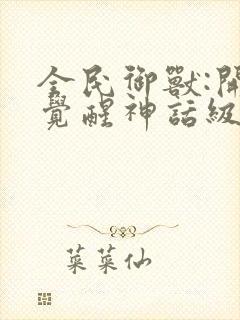 全民御獸:開
覺醒神話級
菜菜仙